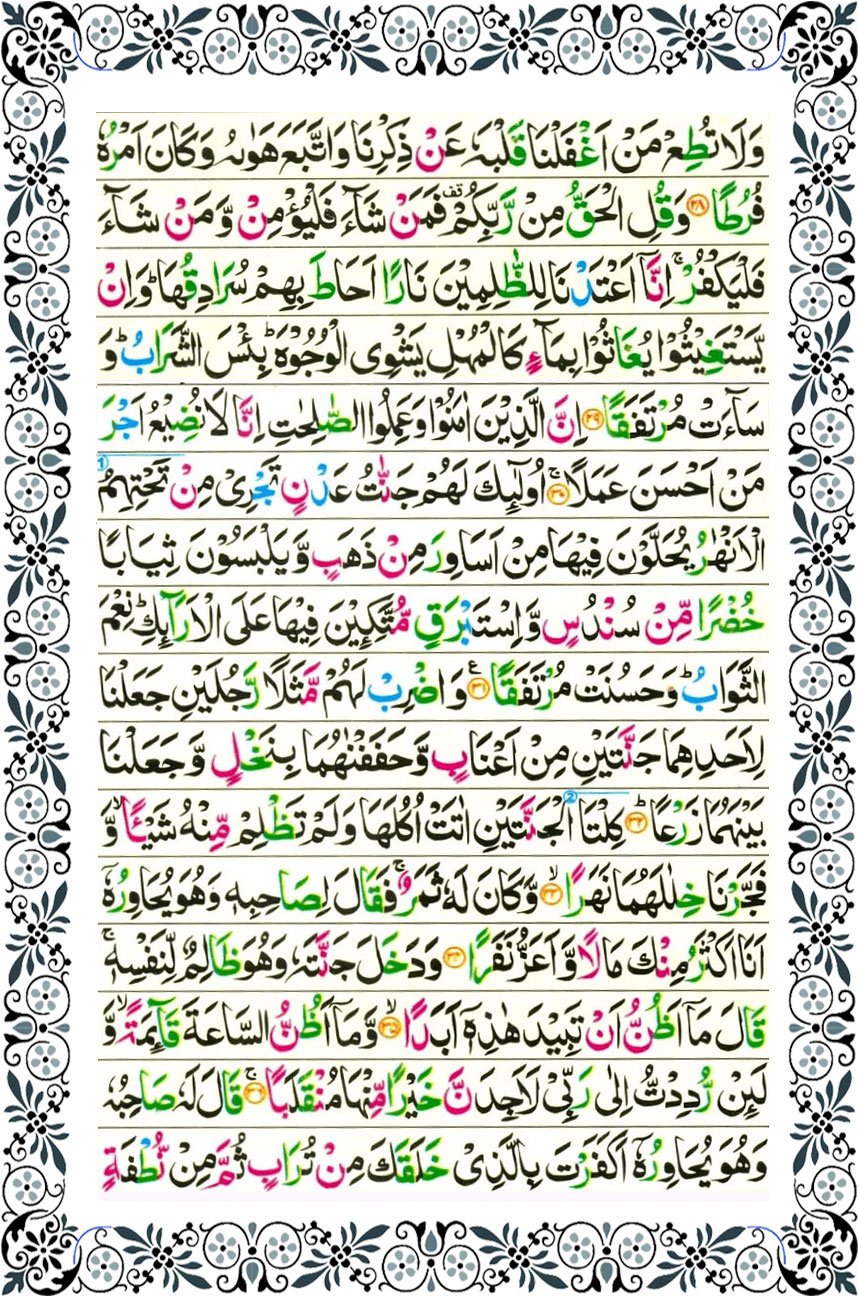 وَلَا تُطِعْ مَنْ اَغْفَلْنَا قَلْبَهٗ عَنْ ذِكْرِنَا وَاتَّبَعَ هَوٰىهُ وَكَانَ اَمْرُهٗ
فُرُطًا ﴿۲۸﴾ وَقُلِ الْحَقُّ مِنْ رَّبِّكُمْ ۫ قف فَمَنْ شَآءَ فَلْيُؤْمِنْ وَّمَنْ شَآءَ
فَلْيَكْفُرْ ۚ اِنَّاۤ اَعْتَدْنَا لِلظّٰلِمِيْنَ نَارًا اَحَاطَ بِهِمْ سُرَادِقُهَا ؕ وَاِنْ
يَّسْتَغِيْثُوْا يُغَاثُوْا بِمَآءٍ كَالْمُهْلِ يَشْوِى الْوُجُوْهَ ؕ بِئْسَ الشَّرَابُ ؕ وَ
سَآءَتْ مُرْتَفَقًا ﴿۲۹﴾ اِنَّ الَّذِيْنَ اٰمَنُوْا وَعَمِلُوا الصّٰلِحٰتِ اِنَّا لَا نُضِيْعُ اَجْرَ
مَنْ اَحْسَنَ عَمَلًا ۚ ﴿۳۰﴾ اُولٰٓئِكَ لَهُمْ جَنّٰتُ عَدْنٍ تَجْرِىْ مِنْ تَحْتِهِمُ 1
الْاَنْهٰرُ يُحَلَّوْنَ فِيْهَا مِنْ اَسَاوِرَ مِنْ ذَهَبٍ وَّيَلْبَسُوْنَ ثِيَابًا
خُضْرًا مِّنْ سُنْدُسٍ وَّاِسْتَبْرَقٍ مُّتَّكِئِيْنَ فِيْهَا عَلَى الْاَرَآئِكِ ؕ نِعْمَ
الثَّوَابُ ؕ وَحَسُنَتْ مُرْتَفَقًا ﴿۳۱﴾ ع وَاضْرِبْ لَهُمْ مَّثَلًا رَّجُلَيْنِ جَعَلْنَا
لِاَحَدِهِمَا جَنَّتَيْنِ مِنْ اَعْنَابٍ وَّحَفَفْنٰهُمَا بِنَخْلٍ وَّجَعَلْنَا
بَيْنَهُمَا زَرْعًا ؕ ﴿۳۲﴾ 2 كِلْتَا الْجَنَّتَيْنِ اٰتَتْ اُكُلَهَا وَلَمْ تَظْلِمْ مِّنْهُ شَيْـًٔا ۙ وَّ
فَجَّرْنَا خِلٰلَهُمَا نَهَرًا ۙ ﴿۳۳﴾ وَّكَانَ لَهٗ ثَمَرٌ ۚ فَقَالَ لِصَاحِبِهٖ وَهُوَ يُحَاوِرُهٗۤ
اَنَا اَكْثَرُ مِنْكَ مَالًا وَّاَعَزُّ نَفَرًا ﴿۳۴﴾ وَدَخَلَ جَنَّتَهٗ وَهُوَ ظَالِمٌ لِّنَفْسِهٖ ۚ
قَالَ مَاۤ اَظُنُّ اَنْ تَبِيْدَ هٰذِهٖۤ اَبَدًا ۙ ﴿۳۵﴾ وَّمَاۤ اَظُنُّ السَّاعَةَ قَآئِمَةً ۙ وَّ
لَئِنْ رُّدِدْتُّ اِلٰى رَبِّىْ لَاَجِدَنَّ خَيْرًا مِّنْهَا مُنْقَلَبًا ۚ ﴿۳۶﴾ قَالَ لَهٗ صَاحِبُهٗ
وَهُوَ يُحَاوِرُهٗۤ اَكَفَرْتَ بِالَّذِىْ خَلَقَكَ مِنْ تُرَابٍ ثُمَّ مِنْ نُّطْفَةٍ